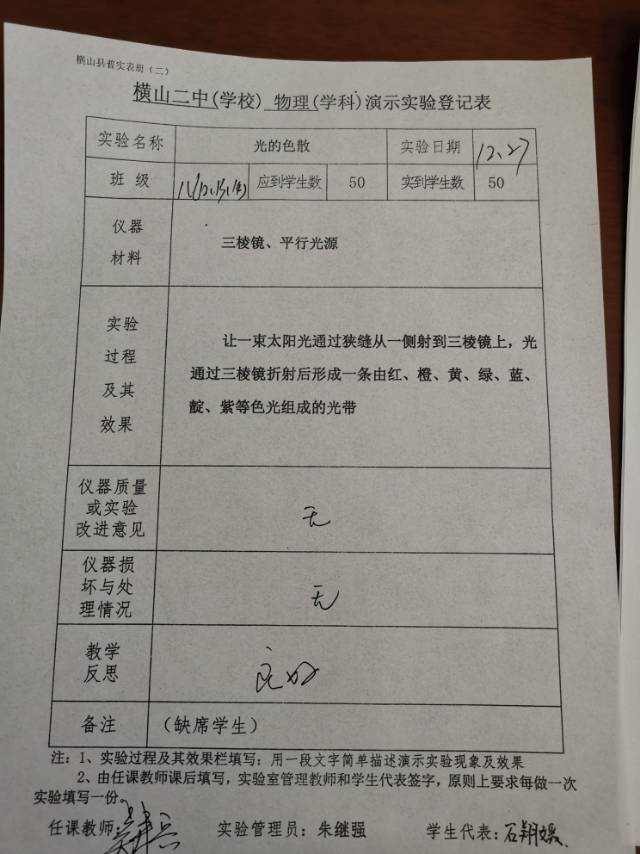 横山县普实表册（二）
横山二中(学校) 物理(学科)演示实验登记表
实验名称 光的色散 实验日期 12.27
班 级 应到学生数 50 实到学生数 50
仪器材料 三棱镜、平行光源
实验过程及其效果
让一束太阳光通过狭缝从一侧射到三棱镜上，光
通过三棱镜折射后形成一条由红、橙、黄、绿、蓝、
靛、紫等色光组成的光带
仪器质量或实验改进意见 无
仪器损坏与处理情况 无
教学反思 良好
备注 （缺席学生）
注：1、实验过程及其效果栏填写：用一段文字简单描述演示实验现象及效果
2、由任课教师课后填写，实验室管理教师和学生代表签字，原则上要求每做一次
实验填写一份。
任课教师： 实验管理员：朱继强 学生代表：石翔媛